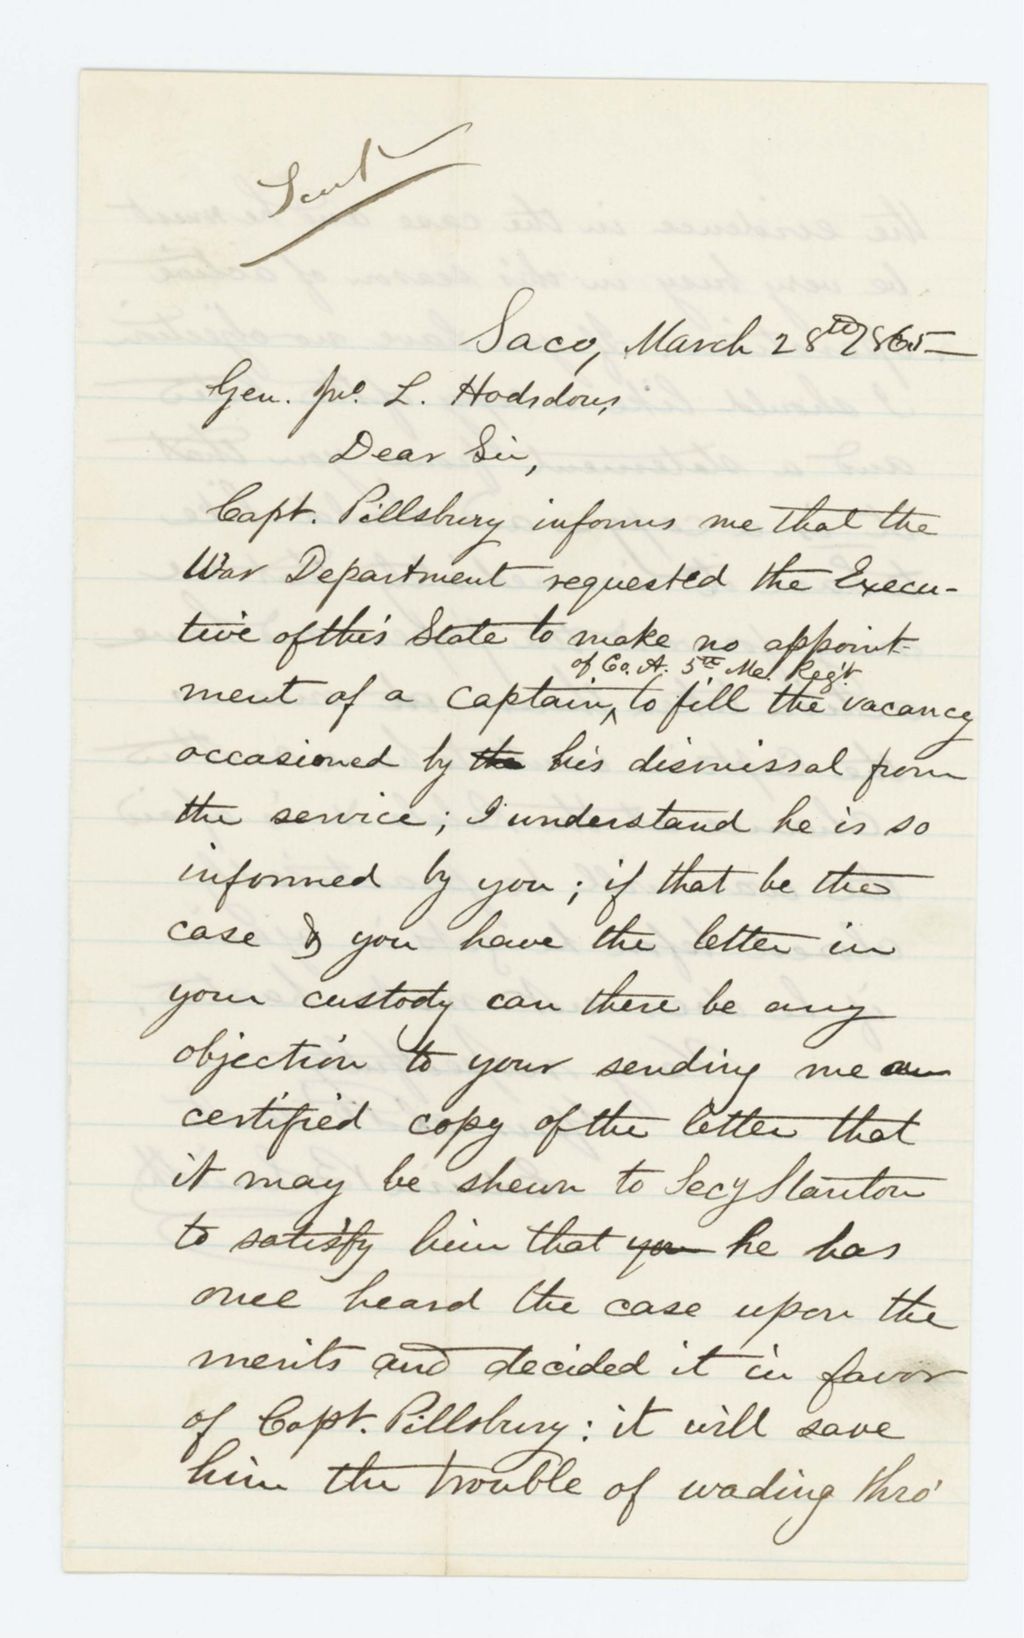 Sent
Saco, March 28th 1865
Gen. Jno. L. Hodsdon,
Dear Sir,
Capt. Pillsbury informs me that the
War Department requested the Execu-
tive of this State to make no appoint-
of Co. A. 5th Me. Reg't
ment of a captain ^ to fill the vacancy
occasioned by the his dismissal from
the service; I understand he is so
informed by you; if that be the
case & you have the letter in
your custody can there be any
objection to your sending me an
certified copy of the letter that
it may be shewn to Secy Stanton
to satisfy him that you he has
once heard the case upon the
merits and decided it in favor
of Capt. Pillsbury: it will save
him the trouble of wading thro'